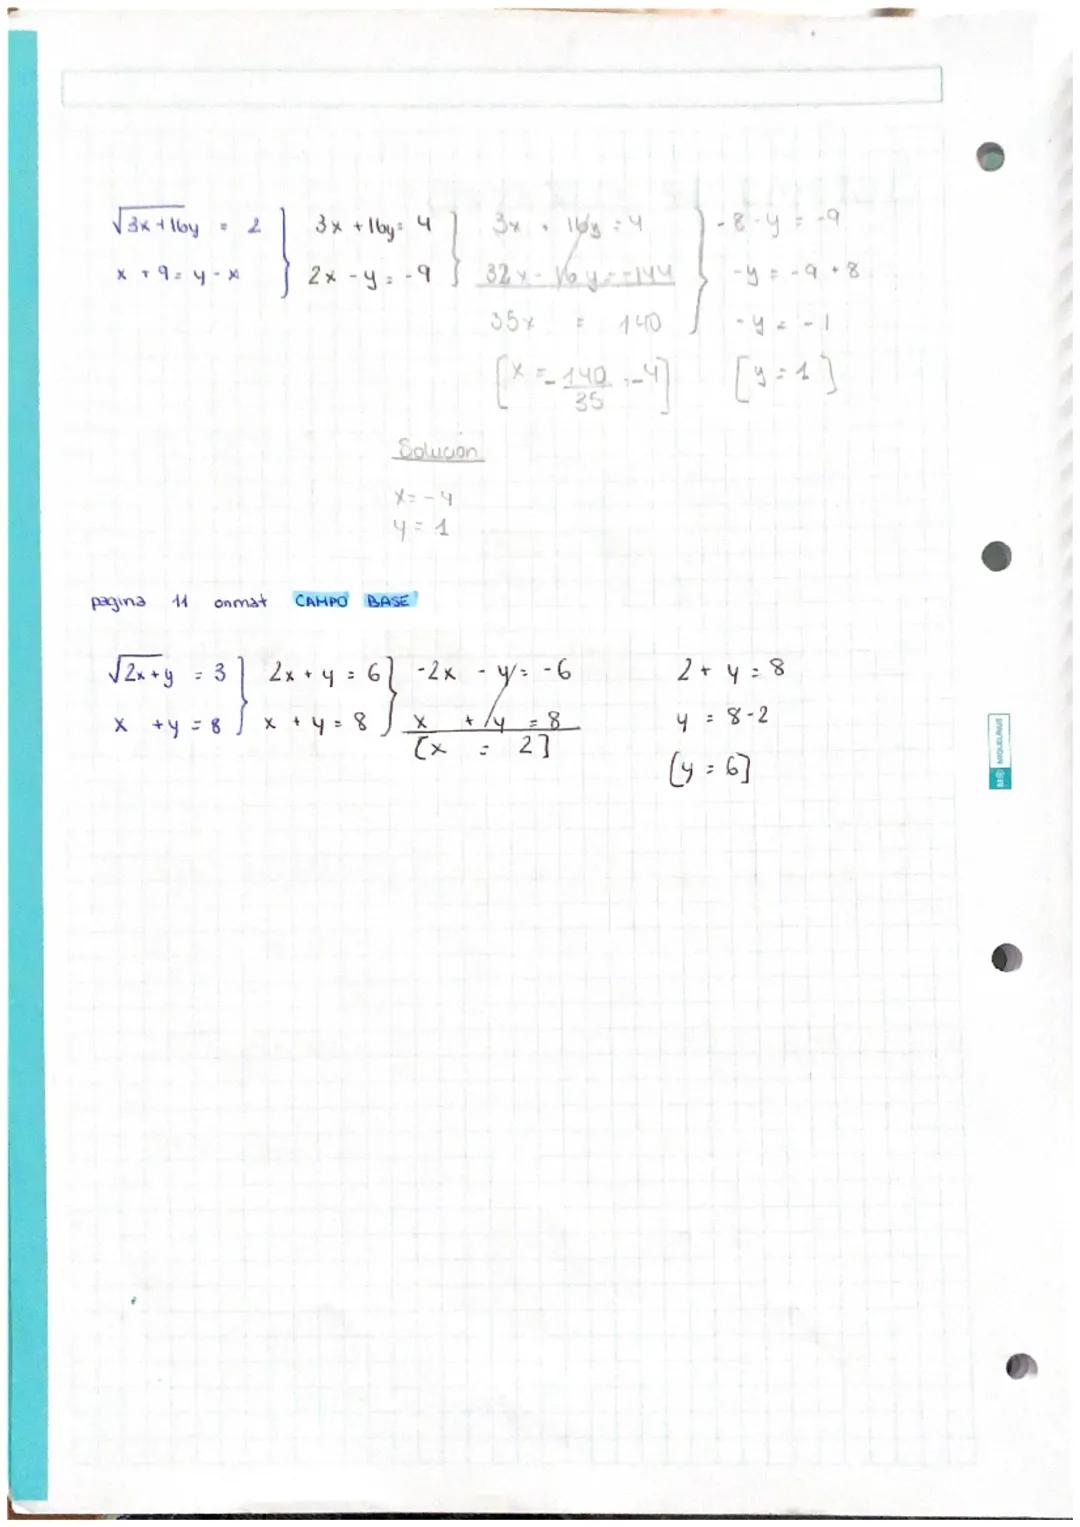 √3x+16y = 2 } 3x + 16y = 4 } 3x + 16y = 4 } -8-y = -9
x + 9 = y - x } 2x - y = -9 } 32x - 16y = -144 } -y = -9 + 8
35x = 140 -y = -1
[x = -140/35 = -4] [y = 1]
Solución
x = -4
y = 1
página 11 onmat CAMPO BASE
√2x+y = 3 } 2x + y = 6 } -2x - y = -6 2 + y = 8
x + y = 8 } x + y = 8 } x + y = 8 y = 8-2
[x = 2] [y = 6]
MIQUELRIUS